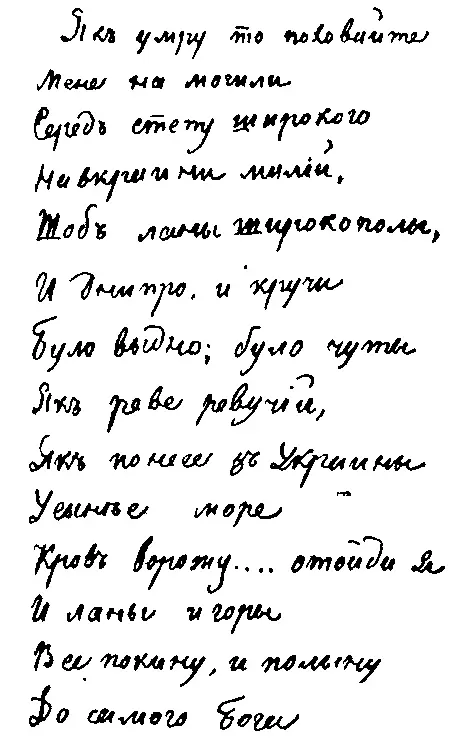 Якъ умру то поховайте
Мене на могили
Середъ степу широкого
На вкраини милій,
Щобъ ланы широкополы,
И Днипро, и кручи
Було выдно; було чуты
Якъ реве ревучій,
Якъ понесе зъ Украины
У сынѣе море
Кровъ ворожу.... отойди я
И ланы и горы
Все покину, и полыну
До самого Бога